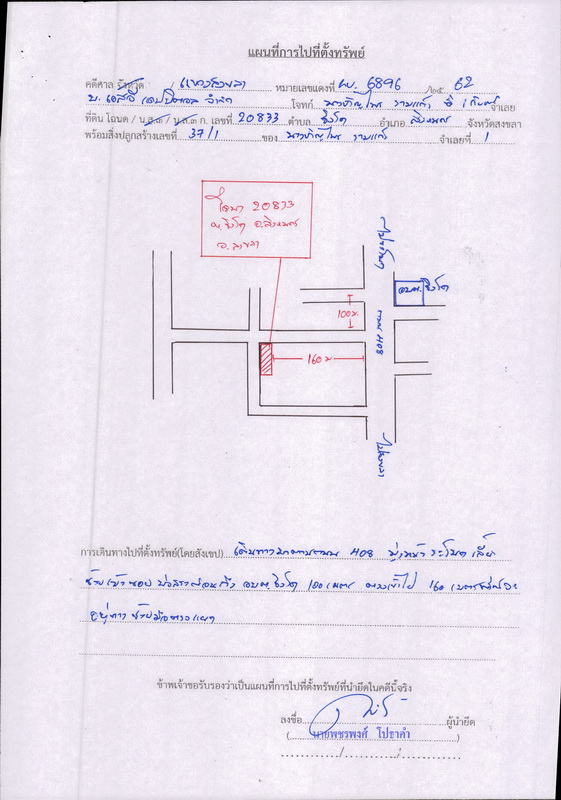 แผนที่การไปที่ตั้งทรัพย์
คดีศาล จังหวัด แขวงสงขลา หมายเลขแดงที่ ผบ. 6896 /๒๕ 62
บ. เอสจี แคปปิตอล จำกัด โจทก์ จำเลย
ที่ดิน โฉนด / น.ส.๓ / น.ส.๓ ก. เลขที่ 20833 ตำบล ชิงโค อำเภอ สิงหนคร จังหวัดสงขลา
พร้อมสิ่งปลูกสร้างเลขที่ 37/1 ของ จำเลยที่ 1
โฉนด 20833
ต.ชิงโค อ.สิงหนคร
จ.สงขลา
ไประโนด
อบต. ชิงโค
100 ม.
ถนน 408
160 ม
ไปสงขลา
การเดินทางไปที่ตั้งทรัพย์(โดยสังเขป) เดินทางมาตามถนน 408 มุ่งหน้า ระโนด เลี้ยว
ซ้ายเข้าซอย ก่อนถึง อบต.ชิงโค 100 เมตร ตรงเข้าไป 160 เมตร
อยู่ทางซ้ายมือ
ข้าพเจ้าขอรับรองว่าเป็นแผนที่การไปที่ตั้งทรัพย์ที่นำยึดในคดีนี้จริง
ลงชื่อ ผู้นำยึด
(นายพชรพงศ์ โปชาคำ)